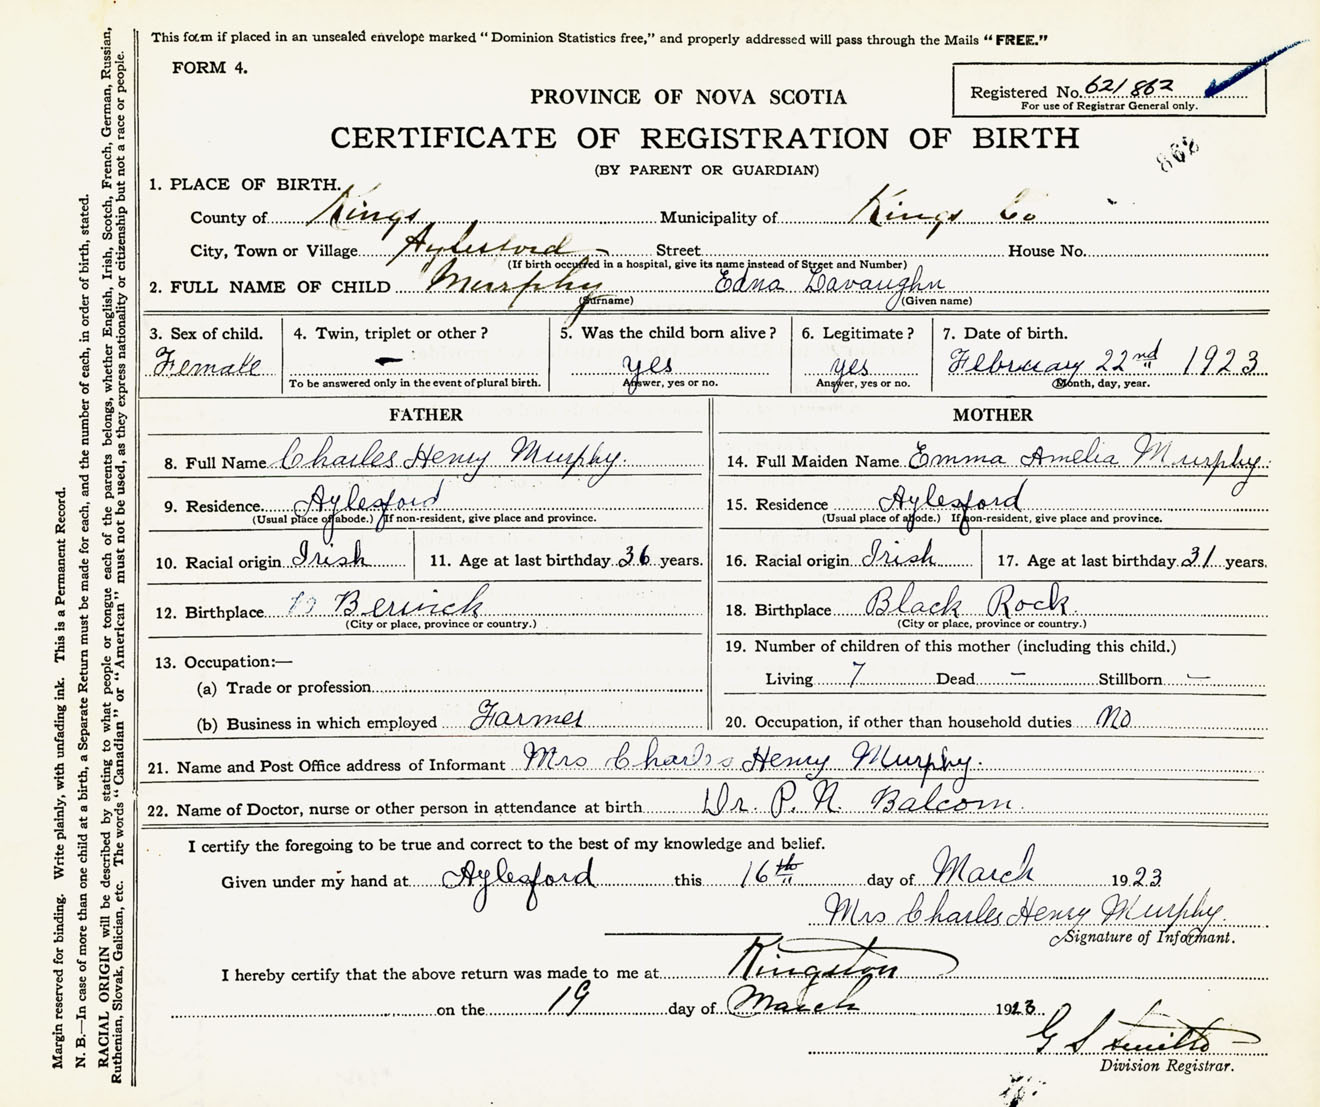 This form if placed in an unsealed envelope marked “Dominion Statistics free,” and properly addressed will pass through the Mails “FREE.”
FORM 4.
Registered No. 621862
For use of Registrar General only.
PROVINCE OF NOVA SCOTIA
CERTIFICATE OF REGISTRATION OF BIRTH
862
(BY PARENT OR GUARDIAN)
1. PLACE OF BIRTH.
County of Kings Municipality of Kings Co
City, Town or Village Aylesford Street House No.
(If birth occurred in a hospital, give its name instead of Street and Number)
2. FULL NAME OF CHILD Murphy Edna Lavaughn
(Surname) (Given name)
3. Sex of child. 4. Twin, triplet or other? 5. Was the child born alive? 6. Legitimate? 7. Date of birth.
Female — yes yes February 22nd 1923
To be answered only in the event of plural birth. Answer, yes or no. Answer, yes or no. Month, day, year.
FATHER MOTHER
8. Full Name Charles Henry Murphy. 14. Full Maiden Name Emma Amelia Murphy.
9. Residence. Aylesford 15. Residence Aylesford
(Usual place of abode.) If non-resident, give place and province. (Usual place of abode.) If non-resident, give place and province.
10. Racial origin Irish 11. Age at last birthday 36 years. 16. Racial origin Irish 17. Age at last birthday 31 years.
12. Birthplace Berwick 18. Birthplace Black Rock.
(City or place, province or country.) (City or place, province or country.)
19. Number of children of this mother (including this child.)
13. Occupation:—
Living 7 Dead — Stillborn —
(a) Trade or profession
(b) Business in which employed Farmer 20. Occupation, if other than household duties No
21. Name and Post Office address of Informant Mrs Charles Henry Murphy.
22. Name of Doctor, nurse or other person in attendance at birth Dr. P. N. Balcom.
I certify the foregoing to be true and correct to the best of my knowledge and belief.
Given under my hand at Aylesford this 16th day of March 1923
Mrs Charles Henry Murphy.
Signature of Informant.
I hereby certify that the above return was made to me at Kingston
on the 19 day of March 1923
G S
Division Registrar.
Margin reserved for binding. Write plainly, with unfading ink. This is a Permanent Record.
N. B.—In case of more than one child at a birth, a Separate Return must be made for each, and the number of each, in order of birth, stated.
RACIAL ORIGIN will be described by stating to what people or tongue each of the parents belongs, whether English, Irish, Scotch, French, German, Russian,
Ruthenian, Slovak, Galician, etc. The words “Canadian” or “American” must not be used, as they express nationality or citizenship but not a race or people.